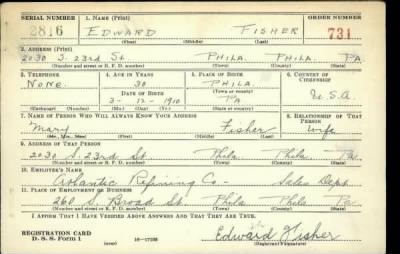 SERIAL NUMBER 1. NAME (Print) ORDER NUMBER
2816 EDWARD FISHER 731
(First) (Middle) (Last)
2. ADDRESS (Print)
2030 S. 23rd St PHILA. PHILA. PA
(Number and street or R. F. D. number) (Town) (County) (State)
3. TELEPHONE 4. AGE IN YEARS 5. PLACE OF BIRTH 6. COUNTRY OF CITIZENSHIP
NONE. 30 PHILA.
DATE OF BIRTH (Town or county)
3 - 12 - 1910 PA U.S.A
(Exchange) (Number) (Mo.) (Day) (Yr.) (State or country)
7. NAME OF PERSON WHO WILL ALWAYS KNOW YOUR ADDRESS 8. RELATIONSHIP OF THAT PERSON
Mary Fisher wife
(Mr., Mrs., Miss) (First) (Middle) (Last)
9. ADDRESS OF THAT PERSON
2030 S. 23rd St Phila Phila. Pa.
(Number and street or R. F. D. number) (Town) (County) (State)
10. EMPLOYER'S NAME
Atlantic Refining Co. - Sales Dept.
11. PLACE OF EMPLOYMENT OR BUSINESS
260 S. Broad St. Phila Phila Pa
(Number and street or R. F. D. number) (Town) (County) (State)
I AFFIRM THAT I HAVE VERIFIED ABOVE ANSWERS AND THAT THEY ARE TRUE.
REGISTRATION CARD
D. S. S. Form 1 16-17105 Edward Fisher
(Registrant's signature)